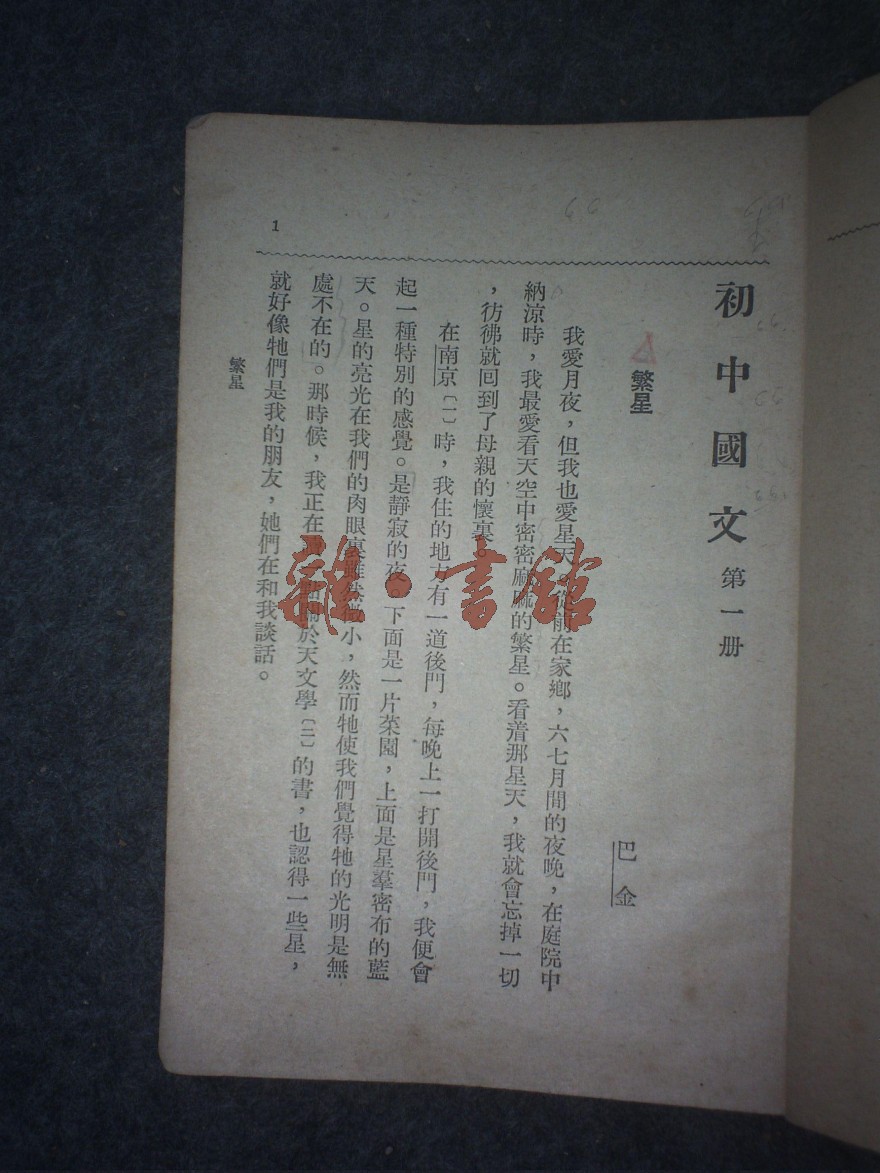 初中國文 第一册
繁星
巴金
我愛月夜，但我也愛星天。從前在家鄉，六七月間的夜晚，在庭院中
納涼時，我最愛看天空中密密麻麻的繁星。看着那星天，我就會忘掉一切
，彷彿就回到了母親的懷裏。
在南京〔一〕時，我住的地方有一道後門，每晚上一打開後門，我便會
起一種特別的感覺。是靜寂的夜。下面是一片菜園，上面是星羣密布的藍
天。星的亮光在我們的肉眼裏雖然微小，然而牠使我們覺得牠的光明是無
處不在的。那時候，我正在 關於天文學〔二〕的書，也認得一些星，
就好像牠們是我的朋友，她們在和我談話。
繁星
1
雜·書館